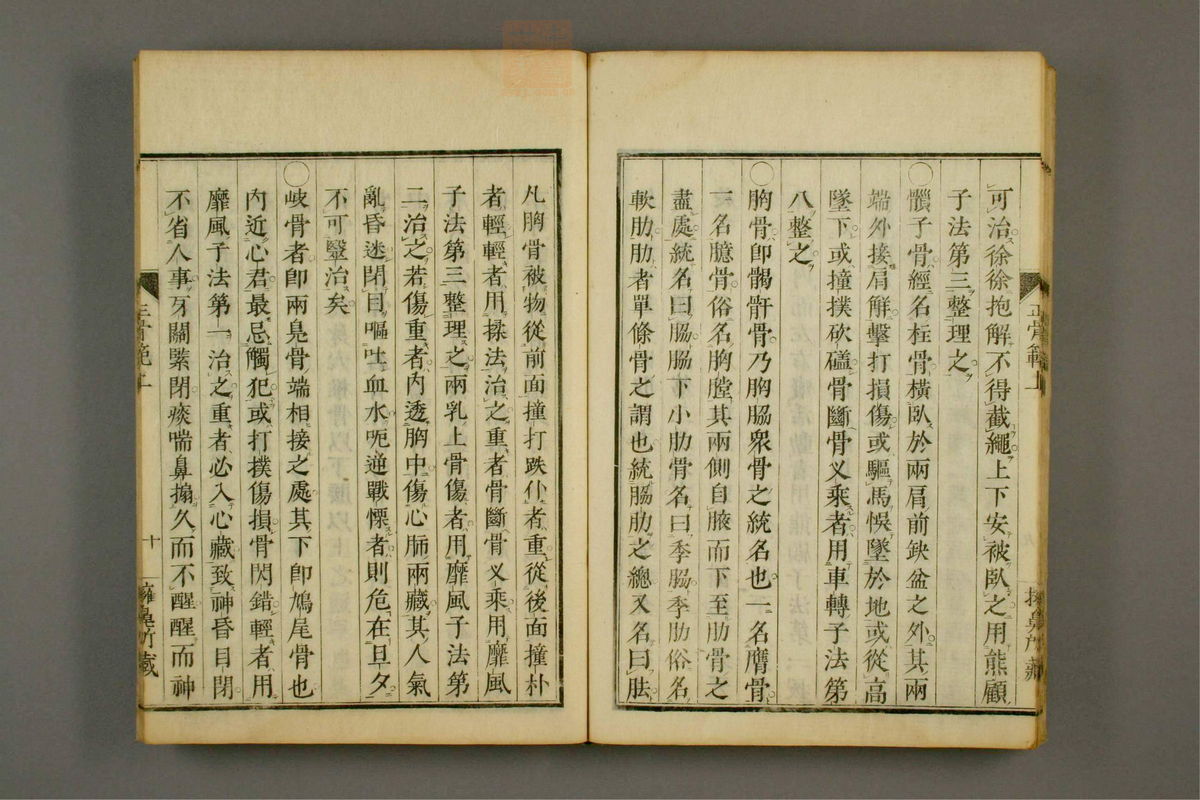 可治徐徐抱解不得截繩上下安被臥之用熊顧
子法第三整理之
○髃子骨經名柱骨橫臥於兩肩前缺盆之外其兩
端外接肩解擊打損傷或驅馬悞墜於地或從高
墜下或撞撲砍磕骨斷骨叉乘者用車轉子法第
八整之
○胸骨卽𩩲骬骨乃胸脇衆骨之統名也一名膺骨
一名臆骨俗名胸膛其兩側自腋而下至肋骨之
盡處統名曰脇脇下小肋骨名曰季脇季肋俗名
軟肋肋者單條骨之謂也統脇肋之總又名曰胠
正骨範上
凡胸骨被物從前面撞打跌仆者重從後面撞朴
者輕輕者用揉法治之重者骨斷骨叉乘用靡風
子法第三整理之兩乳上骨傷者用靡風子法第
二治之若傷重者內透胸中傷心肺兩藏其人氣
亂昏迷閉目嘔吐血水呃逆戰慄者則危在旦夕
不可毉治矣
○岐骨者卽兩鳧骨端相接之處其下卽鳩尾骨也
內近心君最忌觸犯或打撲傷損骨閃錯輕者用
靡風子法第一治之重者必入心藏致神昏目閉
不省人事牙關緊閉痰喘鼻搧久而不醒醒而神
正骨範上
十
擁鼻竹藏